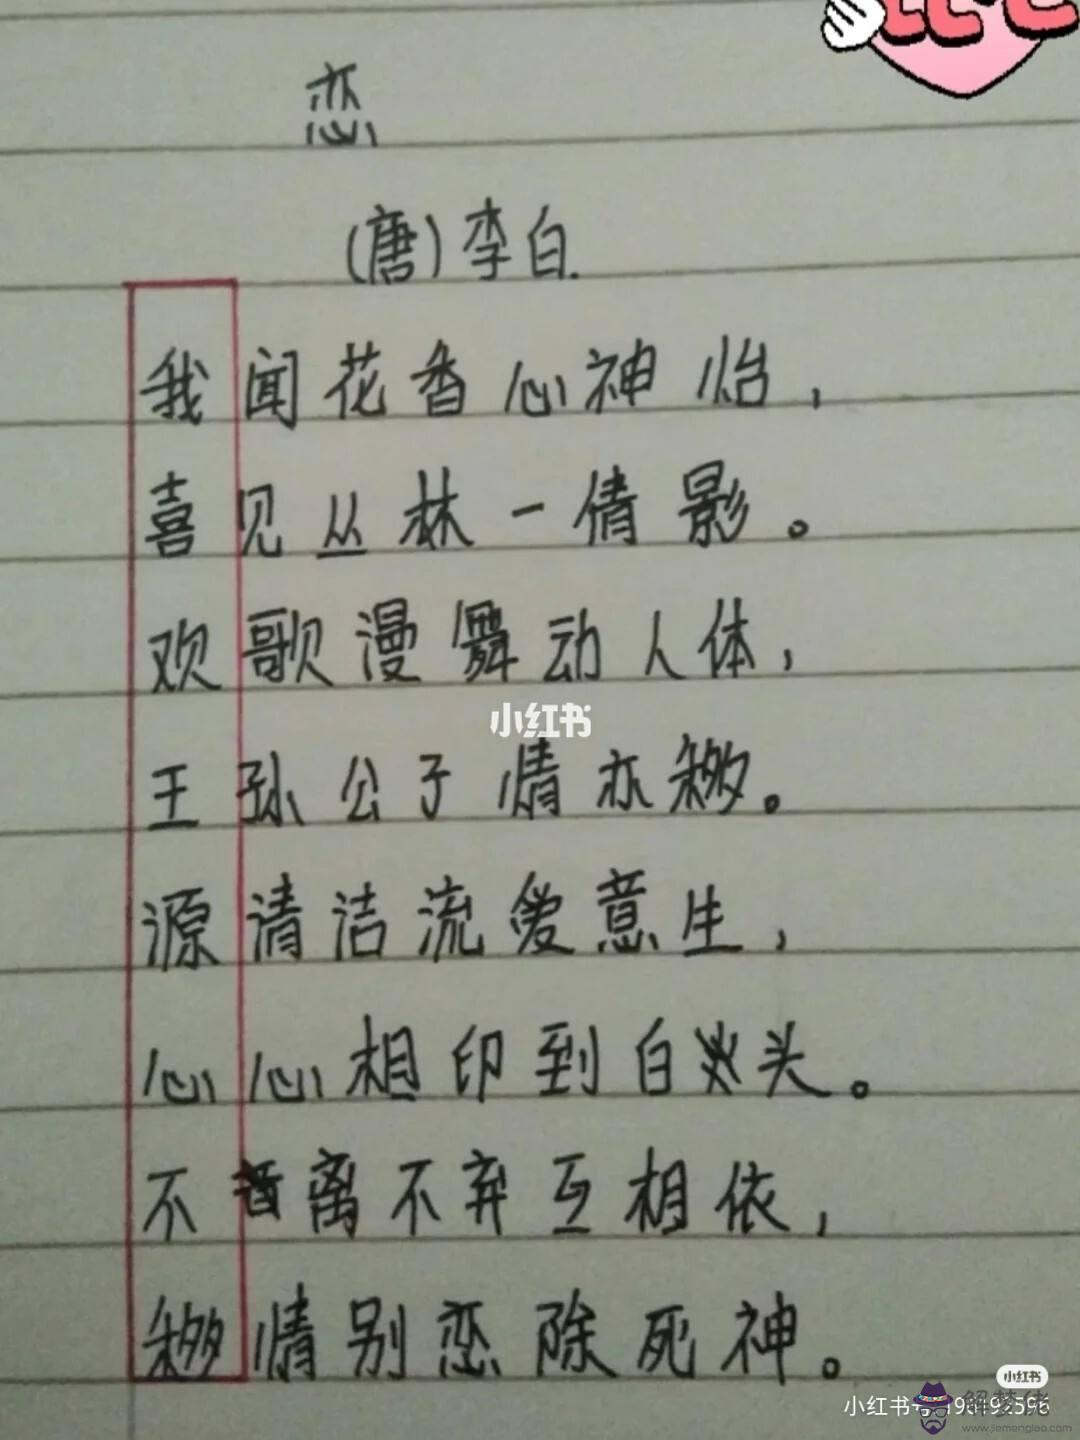 恋
(唐)李白.
我闻花香心神怡，
喜见丛林一倩影。
欢歌漫舞动人体，
王孙公子情亦移。
源清洁流爱意生，
心心相印到白头。
不离不弃互相依，
移情别恋除死神。
小红书
小红书
小红书号
解梦佬
www.jiemenglao.com